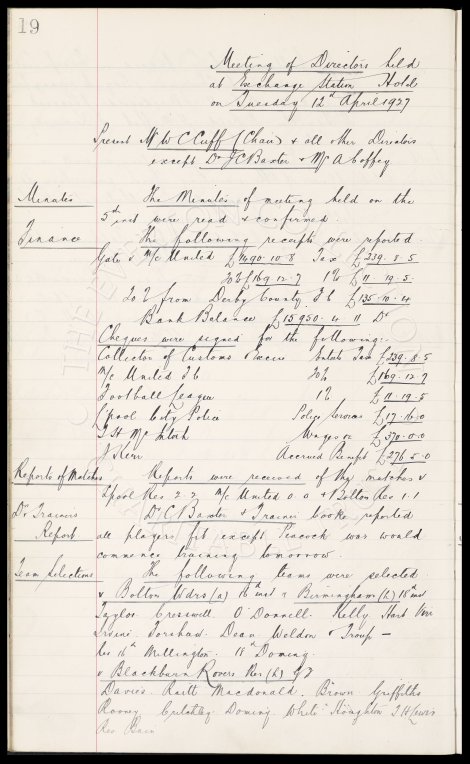 19
Meeting of Directors held
at Exchange Station Hotel
on Tuesday 12th April 1927
Present Mr W C Cuff (Chair) & all other Directors
except Dr J C Baxter & Mr A Coffey
Minutes
The Minutes of meeting held on the
5th inst were read & confirmed.
Finance
The following receipts were reported
Gate v M/c United £1490.10.8 Tax £239.8.5
20% £169.12.7 1% £11.19.5
20% from Derby County Fb £135.10.4
Bank Balance £15950.4.11 Dr
Cheques were signed for the following:-
Collector of Customs & Excise Entets Tax £239.8.5
M/c United Fb 20% £169.12.7
Football League 1% £11.19.5
L'pool City Police Police Services £17.16.0
T H McIntosh Wages &c £370.0.0
J Kerr Accrued Benefit £276.5.0
Reports of Matches
Reports were received of the matches v
L'pool Res 2.2 M/c United 0 0 & Bolton Res 1.1
Dr Trainers
Report
Dr J C Baxter & Trainer Cooke reported
all players fit except Peacock who would
commence training tomorrow.
Team Selections
The following teams were selected.
v Bolton Wdrs (a) 16th inst & Birmingham (h) 18th inst
Taylor Cresswell O'Donnell. Kelly Hart Virr
Irvine Forshaw. Dean Weldon & Troup —
Res 16th Millington. 18th Doming.
v Blackburn Rovers Res (h)
Davies. Raitt Macdonald. Brown Griffiths
Rooney Critchley Doming. White Houghton T H Lewis
Res Bain